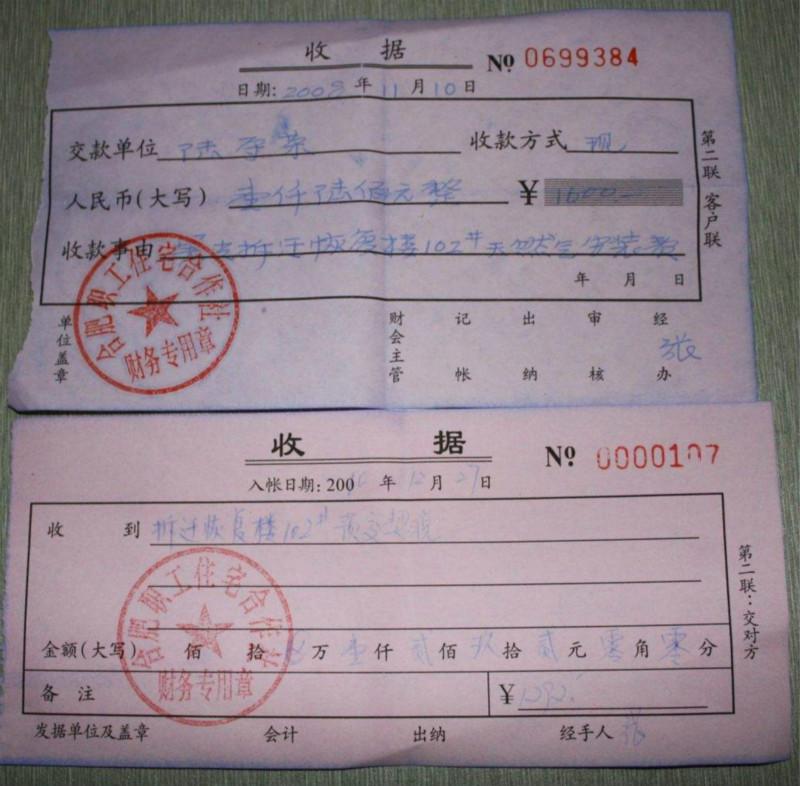 收 据
№ 0699384
日期: 2008 年 11 月 10 日
交款单位 陆 收款方式 现
人民币(大写) 壹仟陆佰元整 ¥ 1600—
收款事由 拆迁恢复楼102# 天然气安装款
年 月 日
第二联 客户联
单位盖章 财会主管 记帐 出纳 审核 经办 张
合肥职工住宅合作社
财务专用章
收 据
№ 0000107
入帐日期: 200 年 12 月 27 日
收 到 拆迁恢复楼102# 预交契税
金额(大写) 佰 拾 万 壹 仟 贰 佰 玖 拾 贰 元 零 角 零 分
备 注 ¥ 1292
第二联:交对方
发据单位及盖章 会计 出纳 经手人 张
合肥职工住宅合作社
财务专用章